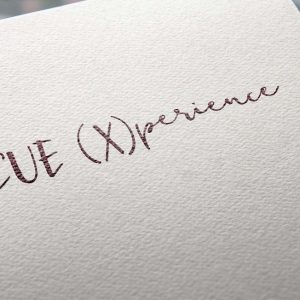 CUE (X)perience